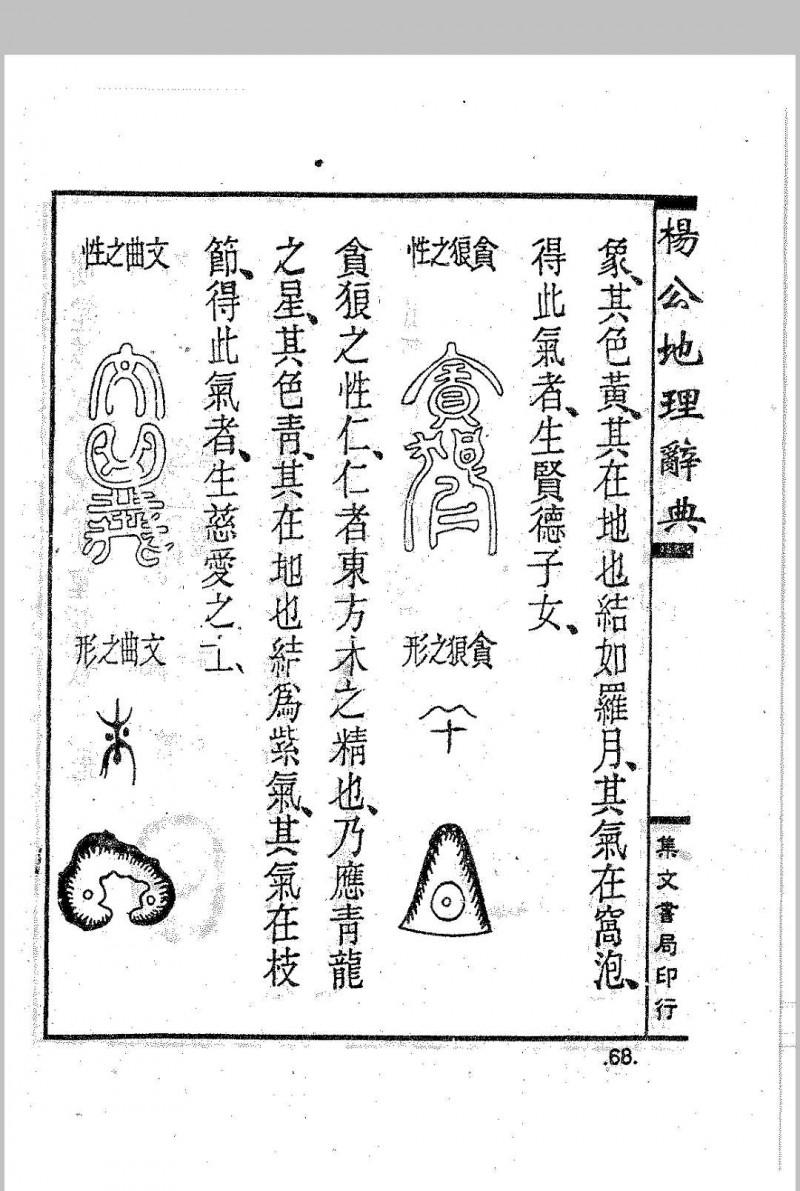 楊公地理辭典
集文書局印行
象、其色黃、其在地也結如羅月、其氣在窩泡、
得此氣者、生賢德子女、
貪狼之性
貪狼
貪狼之形
貪狼之性仁、仁者東方木之精也、乃應青龍
之星、其色青、其在地也結爲紫氣、其氣在枝
節、得此氣者、生慈愛之士、
文曲之性
文曲之形
.68.